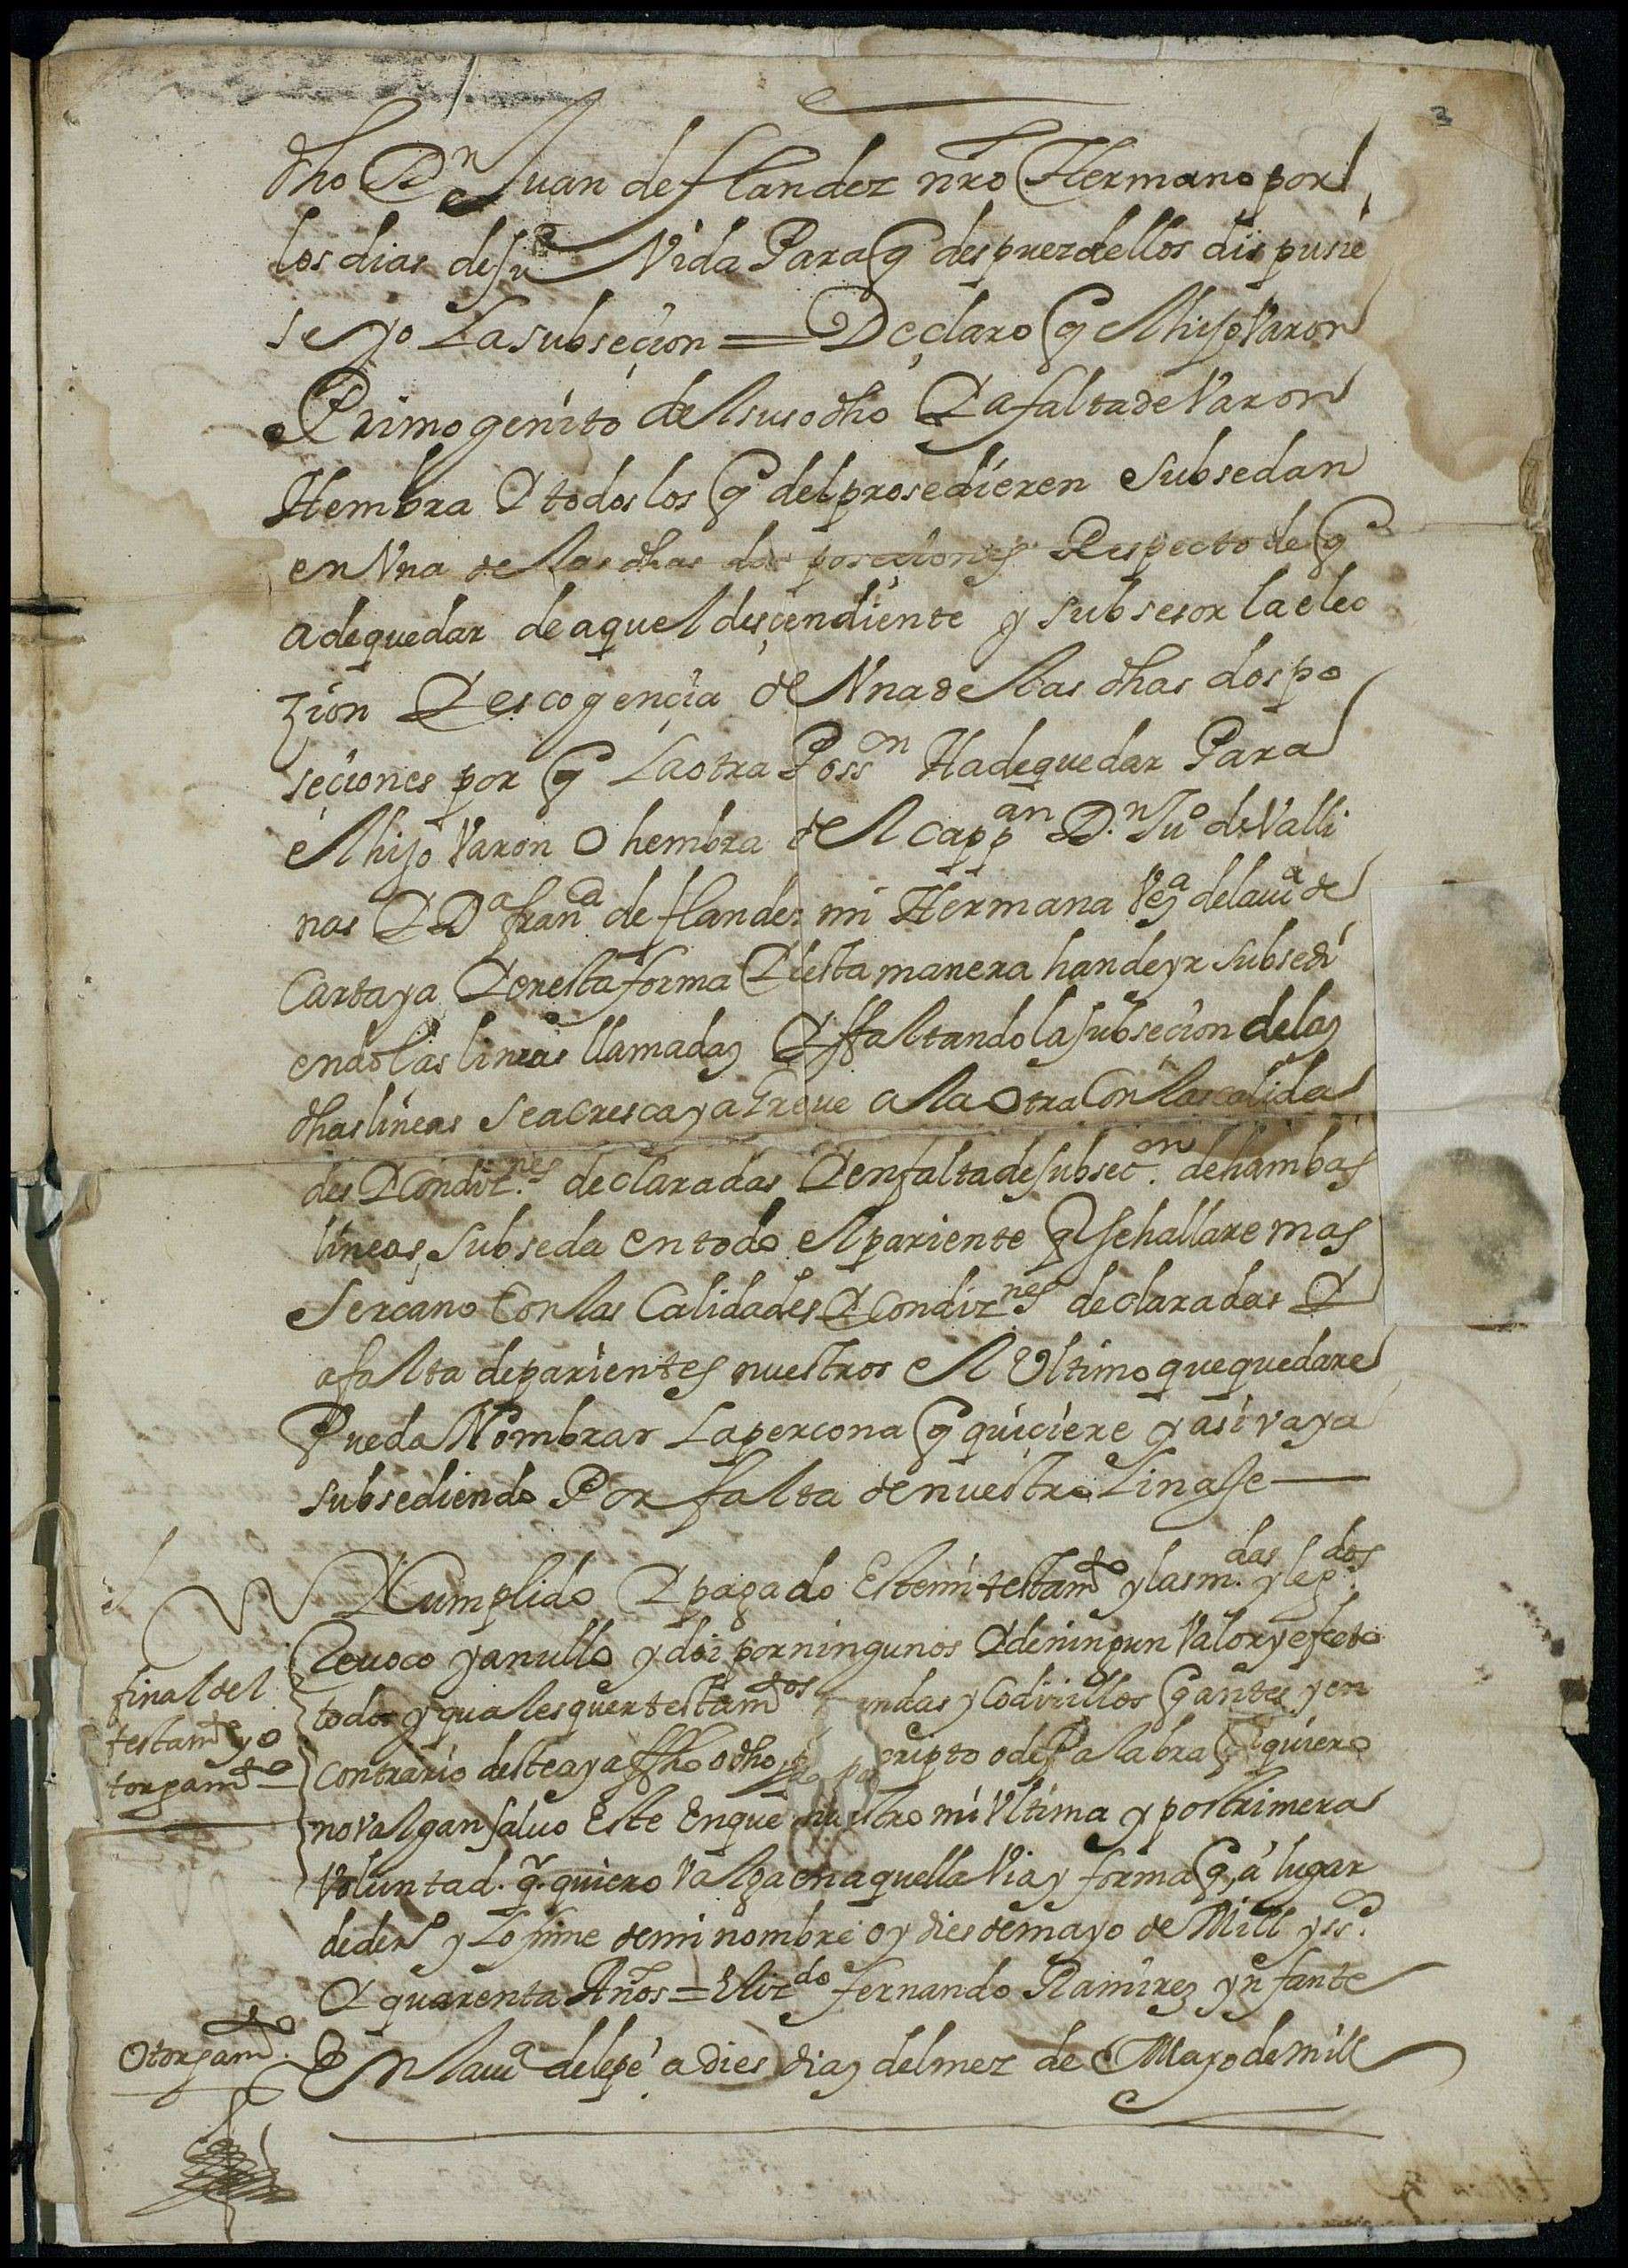 dho Dn Juan de flandez nro Hermano por
los dias de su Vida Para q despuez dellos dispusie
se yo La subseçion = Deçlaro q el hijo Varon
Primogenito del susodho & a falta de Varon
Hembra & todos los q del prosedieren subsedan
en Vna de las dhas dos poseçiones Respecto de q
a de quedar de aquel desçendiente y subsesor la elec
zion & escogençia de Vna de las dhas dos po
seçiones por q La otra Posson Ha de quedar Para
el hijo Varon O hembra del Cappan D.n Juo de Valli
nas & Da franca de flandez mi Hermana Vea de la va de
Cartaya & en esta forma & esta manera han de yr subsedi
endo las lineas llamadas & ffaltando la subseçion de las
dhas lineas se acresca y a la otra Con las calida
des & Condiz.nes declaradas & en falta de subsec.on de hambas
lineas, subseda en todo el pariente q se hallare mas
sercano Con las Calidades & Condiznes declaradas &
a falta de parientes nuestros el Vltimo que quedare
Pueda Nombrar La percona q quiçiere y asi vaya
subsediendo Por falta de nuestro Linaje
Cumplido & pagado Este mi testamto y las m.das y leg.dos
Revoco y anullo y doi por ningunos & de ningun Valor y efecto
todos y qualesquer testamtos ndas y Codiçillos q antes y en
Contrario deste aya ffho o dho cripto o de Palabra q quiero
no Valgan salvo Este En que muestro mi Vltima y postrimera
Voluntad. q. quiero Valga en aquella Via y forma q á lugar
de dero y Lo firme de mi nombre oy dies de mayo de Mill y ss.
& quarenta Años = El lizdo fernando Ramirez ynfante
final del
testamto y o
torgamto
Otorgamto
En la va de lepe a dies dias del mez de Mayo de mill